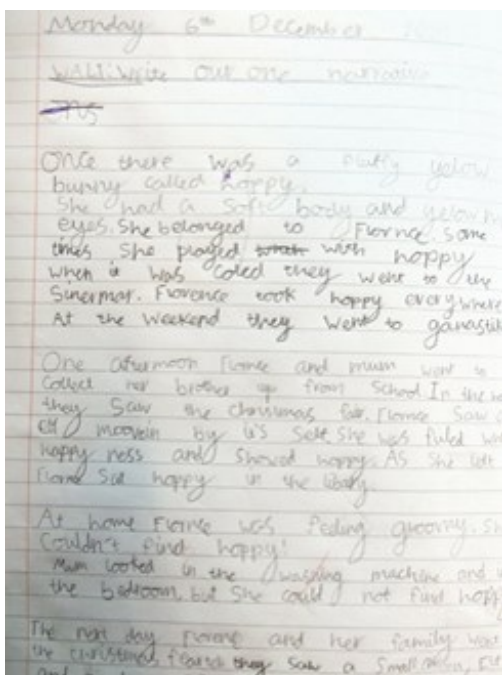 Monday 6th December
WALT: Write out one narrative
Once there was a fluffy yelow
bunny called hoppy.
She had a soft body and yelow
eyes. She belonged to Flornce. Some
times She played with hoppy
when it was coled they went to the
Sinermar. Florence took hoppy everywhere
At the weekend they went to ganastik
One afternoon Flornce and mum went to
Collect her brother up from School In the
they Saw the christmas fair. Flornce Saw
elf moovein by it's Self. She was filled
happy ness and Showed hoppy. As She left
Flornce Sat hoppy in the libary.
At home Flornce was feeling gloomy. She
Couldn't find hoppy!
Mum looked in the washing machine and
the bedroom, but She could not find hoppy
The next day Florence and her family went
the christmas they Saw a Small